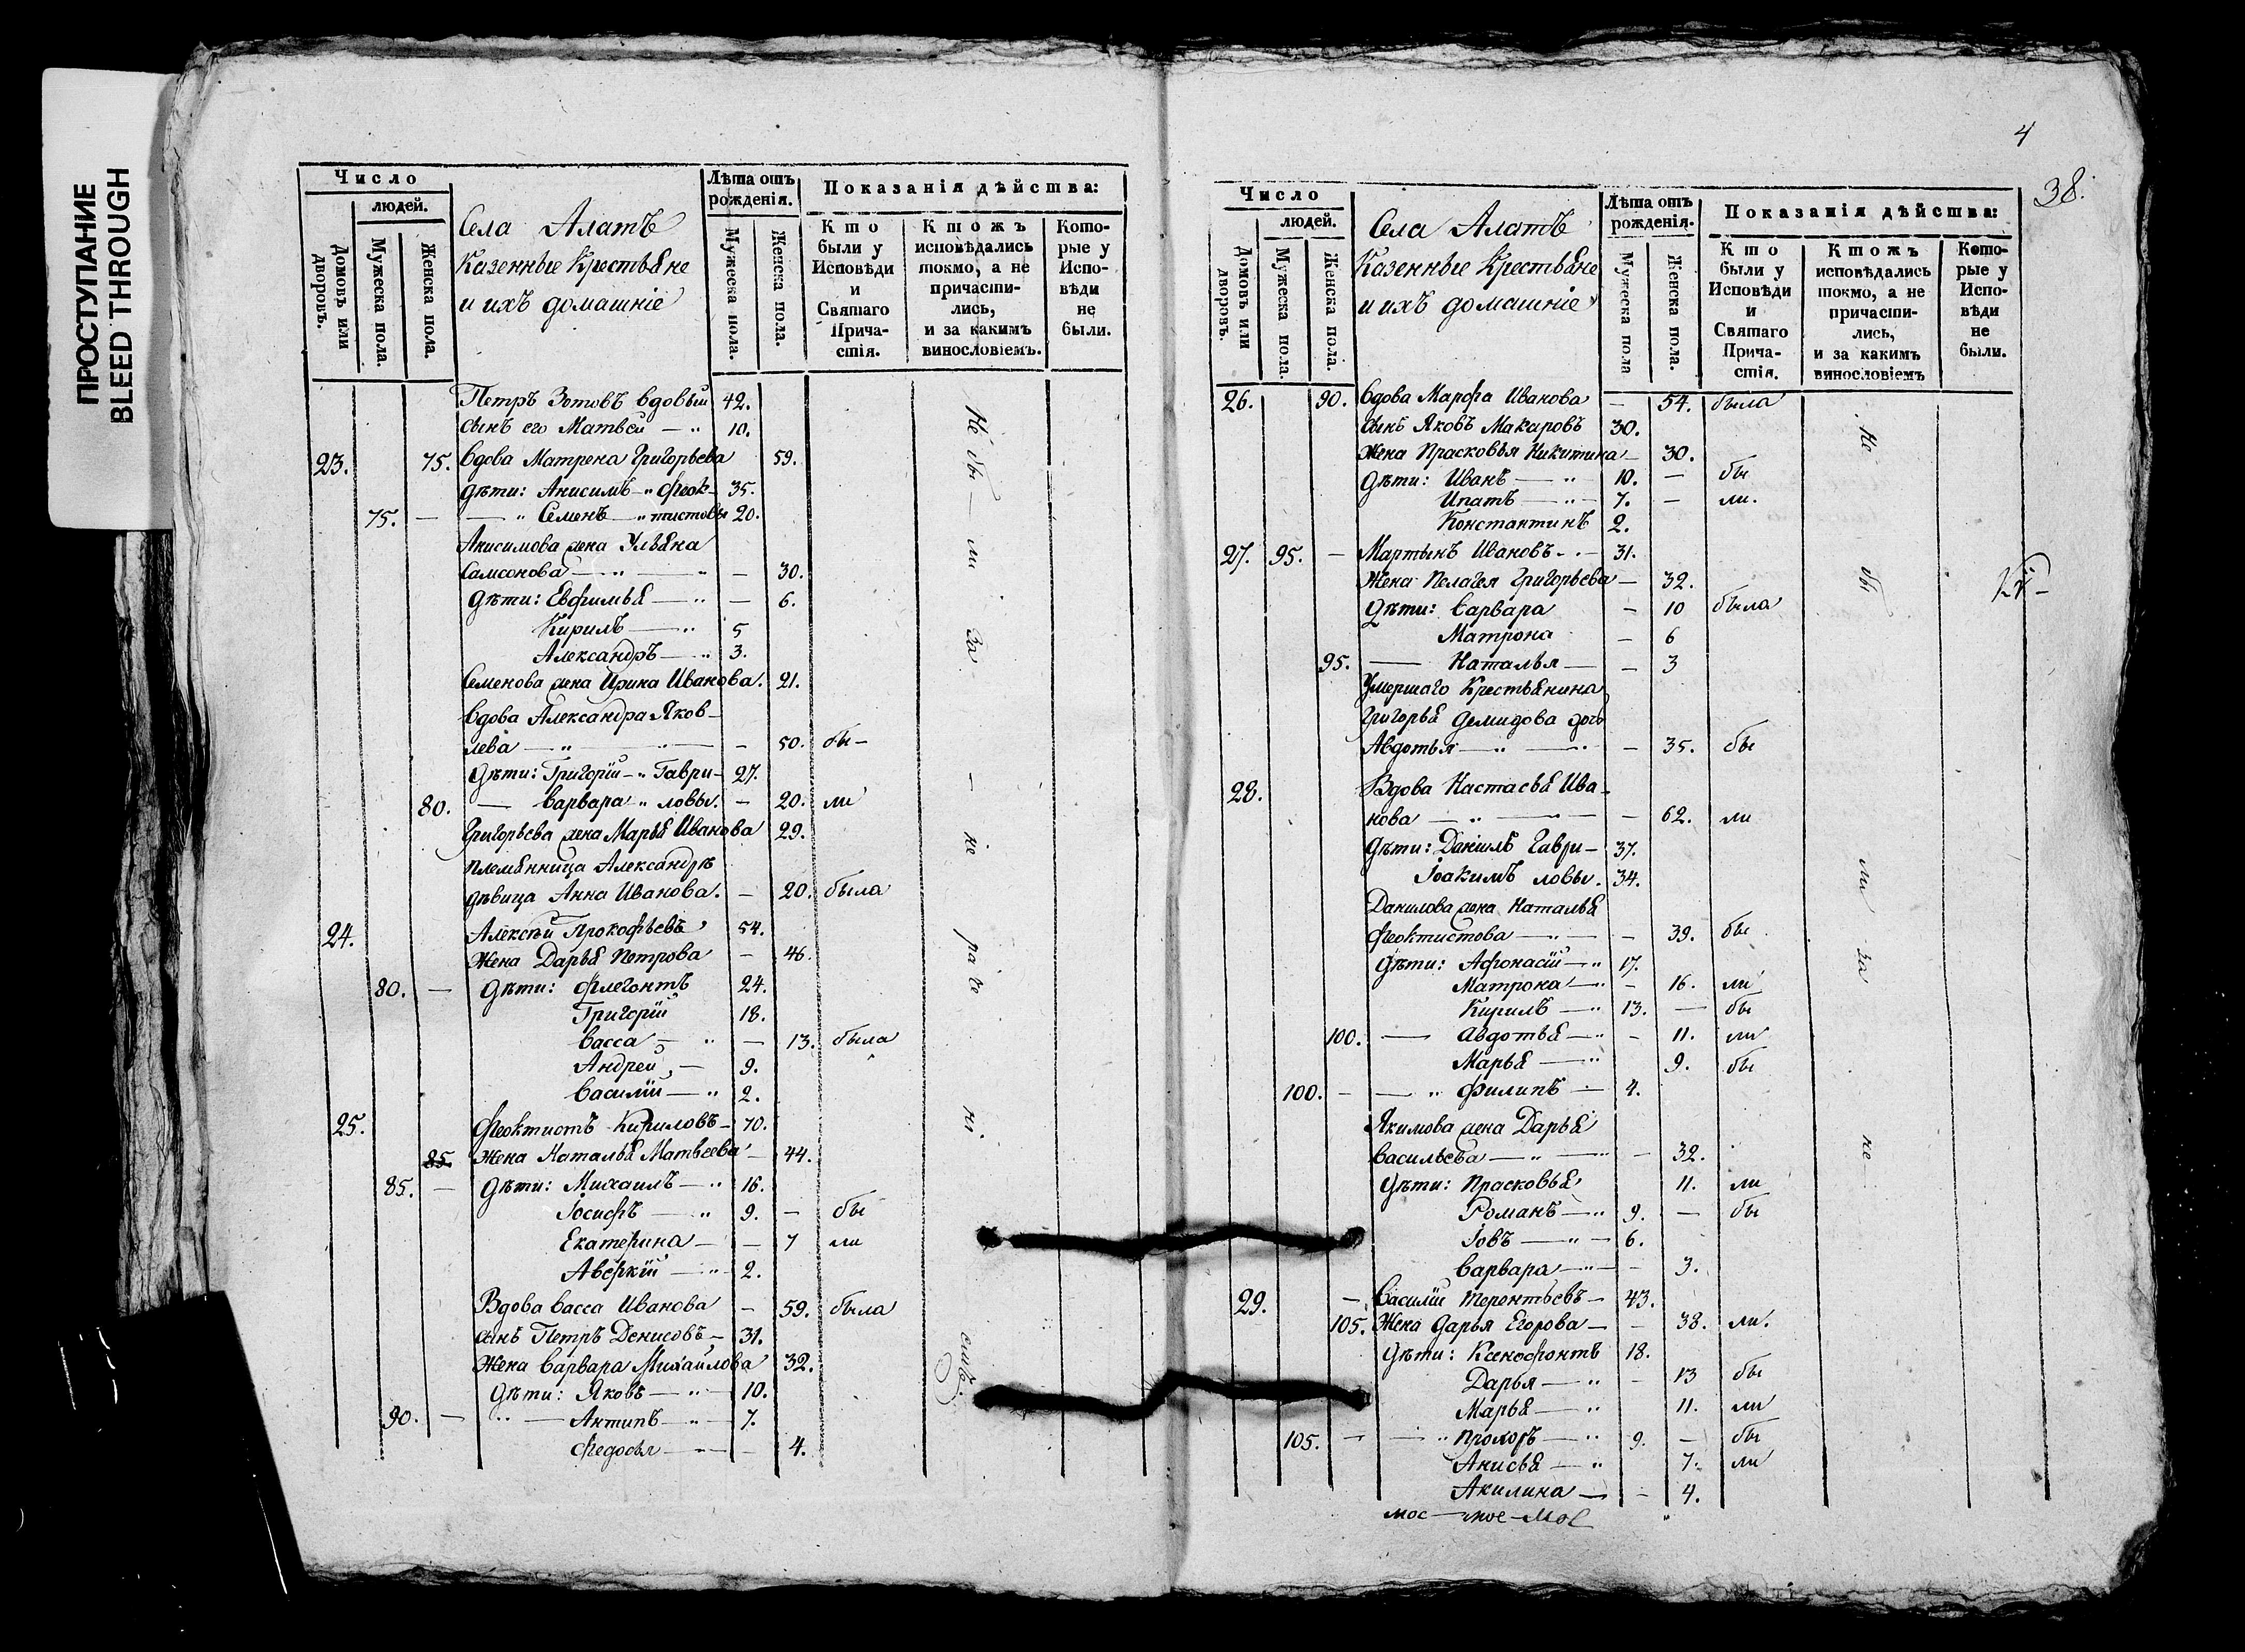 ПРОСТУПАНИЕ
BLEED THROUGH
Число
людей.
Домовъ или дворовъ.
Мужеска пола.
Женска пола.
Села Алатъ
Казенные Крестьяне
и ихъ домашніе
Лѣта отъ рожденія.
Мужеска пола.
Женска пола.
Показанія дѣйства:
Кто были у Исповѣди и Святаго Прича-стія.
Ктожъ исповѣдались токмо, а не причасти-лись, и за какимъ винословіемъ.
Кото-рые у Испо-вѣди не были.
Петръ Зотовъ вдовый 42.
сынъ его Матвей — " 10.
23. 75. Вдова Матрена Григорьева 59.
дѣти: Анисимъ — " Феок- 35.
75. — — " Семенъ — " тистовы 20.
Анисимова жена Ульяна
Самсонова — " — " — 30.
дѣти: Евфимья — " — 6.
Кирилъ — " 5
Александръ — " 3.
Семенова жена Ирина Иванова. 21.
Вдова Александра Яков-
лева — " — — 50. бы-
дѣти: Григорій — " Гаври- 27.
80. — Варвара " ловы. — 20. ли
Григорьева жена Марья Иванова 29.
племянница Александрѣ
дѣвица Анна Иванова. — 20. была
24. Алексѣй Прокофьевъ 54.
Жена Дарья Петрова — 46.
80. — дѣти: Флегонтъ 24.
Григорій 18.
Васса — " — 13. была
Андрей — 9.
Василій — " 2.
25. Феоктистъ Кириловъ — 70.
85. Жена Наталья Матвеева — 44.
85. — дѣти: Михаилъ — " 16.
Іосифъ — " 9. — бы
Екатерина — — 7 ли
Аверкій — " 2.
Вдова Васса Иванова — 59. была
сынъ Петръ Денисовъ — 31.
Жена Варвара Михайлова 32.
дѣти: Яковъ — " — 10.
90. — " — Антипъ — " — 7.
Федосья — — 4.
Не бы — ли за — не раде ні
4
38.
Число
людей.
Домовъ или дворовъ.
Мужеска пола.
Женска пола.
Села Алатъ
Казенные Крестьяне
и ихъ домашніе
Лѣта отъ рожденія.
Мужеска пола
Женска пола.
Показанія дѣйства:
Кто были у Исповѣди и Святаго Прича-стія.
Ктожъ исповѣдались токмо, а не причасти-лись, и за какимъ винословіемъ
Кото-рые у Испо-вѣди не были.
26. 90. Вдова Марфа Иванова — 54. была
сынъ Яковъ Макаровъ 30.
Жена Прасковья Никитина — 30.
дѣти: Иванъ — " 10. — бы
Ипатъ — " — 7. — ли.
Константинъ 2.
27. 95. — Мартынъ Ивановъ — 31.
Жена Пелагея Григорьева — 32.
дѣти: Варвара — 10 была
Матрона — 6
95. — Наталья — — 3
Умершаго Крестьянина
Григорья Демидова дочь
Авдотья — " — " — 35. бы
28. Вдова Настасья Ива-
нова — " — — 62. ли
дѣти: Даніилъ Гаври- 37.
Іоакимъ ловы. 34.
Данилова жена Наталья
Феоктистова — " — — 39. бы
дѣти: Афонасій — " 17.
Матрона — " — 16. ли
Кирилъ — " 13. — бы
100. — Авдотья — " — 11. ли
Марья — " 9. бы
100. — — " Филипъ — 4.
Якимова жена Дарья
Васильева — " — — 32.
дѣти: Прасковья 11. ли
Романъ — " 9. — бы
Іовъ — " — 6.
Варвара — " — — 3.
29. — Василій Терентьевъ — 43.
105. Жена Дарья Егорова — — 38. ли.
дѣти: Ксенофонтъ 18.
Дарья — " — 13 бы
Марья — " 11. ли
105. — — " Прохоръ — " 9. — бы
Анисья — " 7. ли
Акилина — — 4.
Не бы ли за не
мос — мос — мос